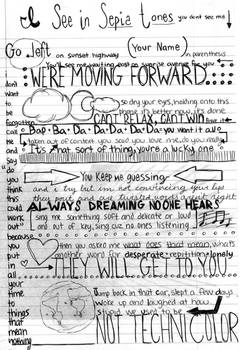 I See in Sepia tones you dont see me
Go left on sunset highway Your Name in parenthesis
You'll see me waiting east on sunrise avenue for you
WE'RE MOVING FORWARD
so dry your eyes, holding onto this
CAN'T RELAX, CAN'T WIN
Bap · Ba · Da · Da · Da · Da · Da you want it ave
taken out of context you said you love me, do you really
It's that sort of thing, you're a lucky one
You Keep me guessing
and I try but im not convincing
ALWAYS DREAMING NO ONE HEAR
sing me something soft and delicate or loud
and out of key, sing cuz no ones listening
then you asked me what does that mean, whats
another word for desperate · repitition · lonely
THEY WILL GET TO YOU
jump back in that car, slept a few days
woke up and laughed at how
stupid we used to be
IN TECHNICOLOR
don't want to be forgotten
call me and Say do you think this because you put in all your time to things that mean nothing